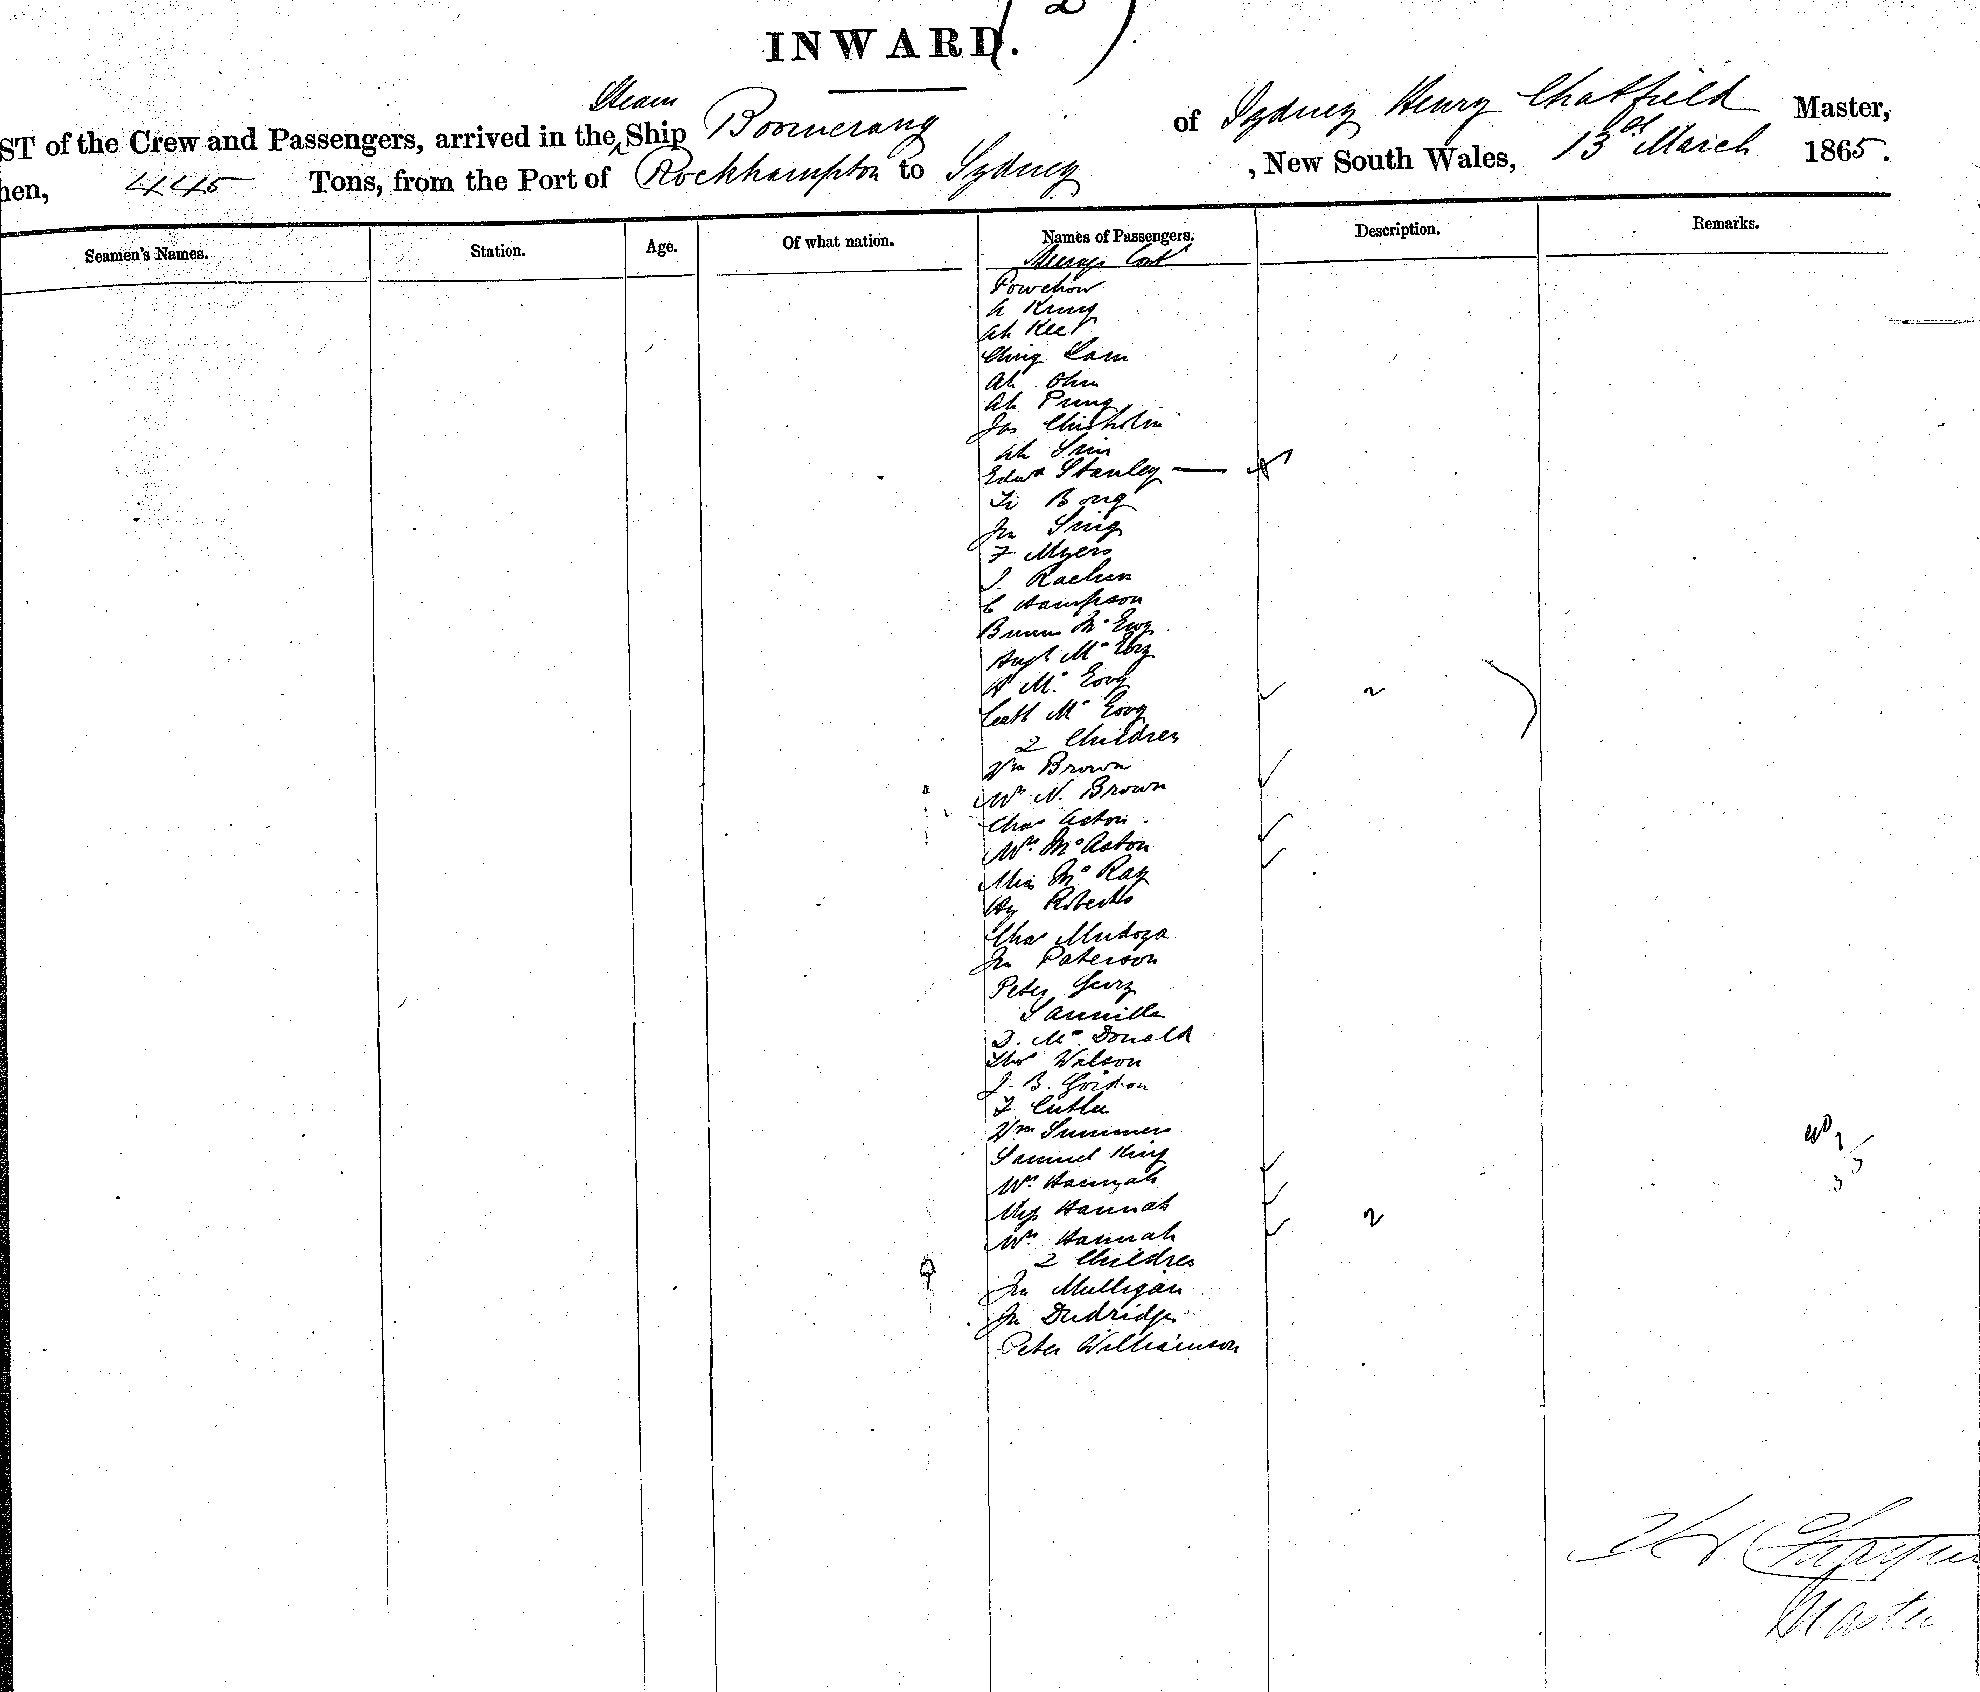 INWARD.
Steam
ST of the Crew and Passengers, arrived in the Ship Boomerang of Sydney Henry Chatfield Master,
hen, 445 Tons, from the Port of Rockhampton to Sydney, New South Wales, 13th March 1865.
Seamen's Names. Station. Age. Of what nation. Names of Passengers. Description. Remarks.
Powchow
Ah Kee
Ching Lam
Ah
Ah Pung
Jas Chisholm
Ah Sim
Edwd Stanley
Bong
Jn Sing
F Myers
J.
C Hampson
Mc Evoy
Hugh Mc Evoy
Mc Evoy
Cath Mc Evoy
2 Children 2
Wm Brown
N. Brown
Chas Acton
Acton
Miss Mc Ray
Hy Roberts
Chas Mendoza
Jn Paterson
Peter
D. Mc Donald
Thos Wilson
J. B. Gordon
F Cutler
Wm Summers
Samuel King
Hannah
Hannah
Hannah 2
2 Children
Jn Mulligan
Jn Dudridge
Peter Williamson
Master